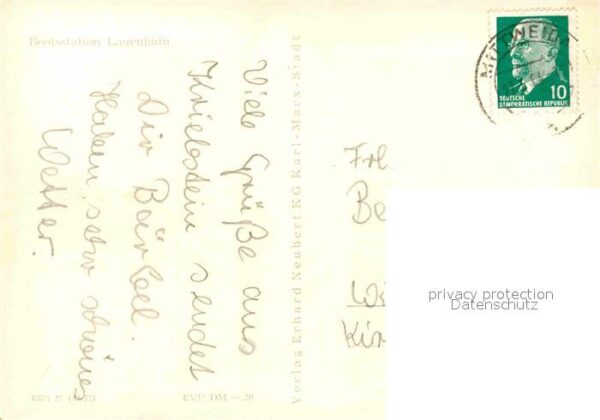 Bootsstation Lauenhain
Viele Grüße aus
Kriebstein sendet
Dir Bärbel.
Haben sehr schönes
Wetter.
EVP DM —.20
Verlag Erhard Neubert KG Karl-Marx-Stadt
MITTWEIDA
10
DEUTSCHE
DEMOKRATISCHE REPUBLIK
Frl.
Be
privacy protection
Datenschutz